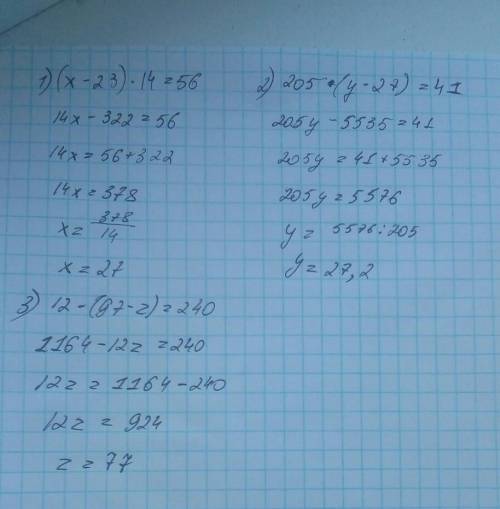 1) (x-23)·14=56
14x-322=56
14x=56+322
14x=378
x=378/14
x=27
2) 205·(y-27)=41
205y-5535=41
205y=41+5535
205y=5576
y=5576:205
y=27,2
3) 12-(97-z)=240
1164-12z=240
12z=1164-240
12z=924
z=77